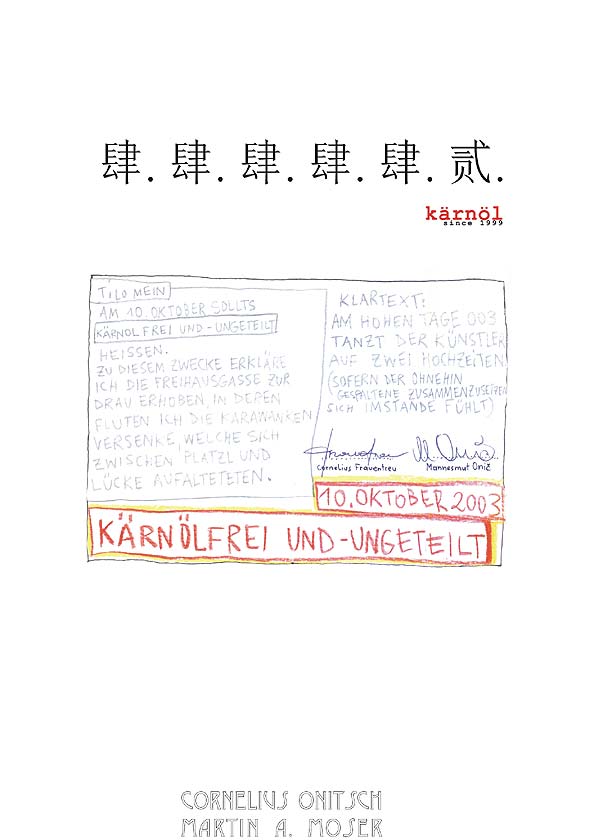 肆.肆.肆.肆.肆.贰.
kärnöl
since 1999
TILO MEIN
AM 10. OKTOBER SOLLTS
KÄRNÖLFREI UND-UNGETEILT
HEISSEN.
ZU DIESEM ZWECKE ERKLÄRE
ICH DIE FREIHAUSGASSE ZUR
DRAU ERHOBEN, IN DEREN
FLUTEN ICH DIE KARAWANKEN
VERSENKE, WELCHE SICH
ZWISCHEN PLATZL UND
LÜCKE AUFALTETETEN.
KLARTEXT:
AM HOHEN TAGE 003
TANZT DER KÜNSTLER
AUF ZWEI HOCHZEITEN
(SOFERN DER OHNEHIN
GESPALTENE ZUSAMMENZUSEITZEN
SICH IMSTANDE FÜHLT)
Cornelius Frauentreu
Mannesmut Onič
10. OKTOBER 2003
KÄRNÖLFREI UND-UNGETEILT
CORNELIUS ONITSCH
MARTIN A. MOSER